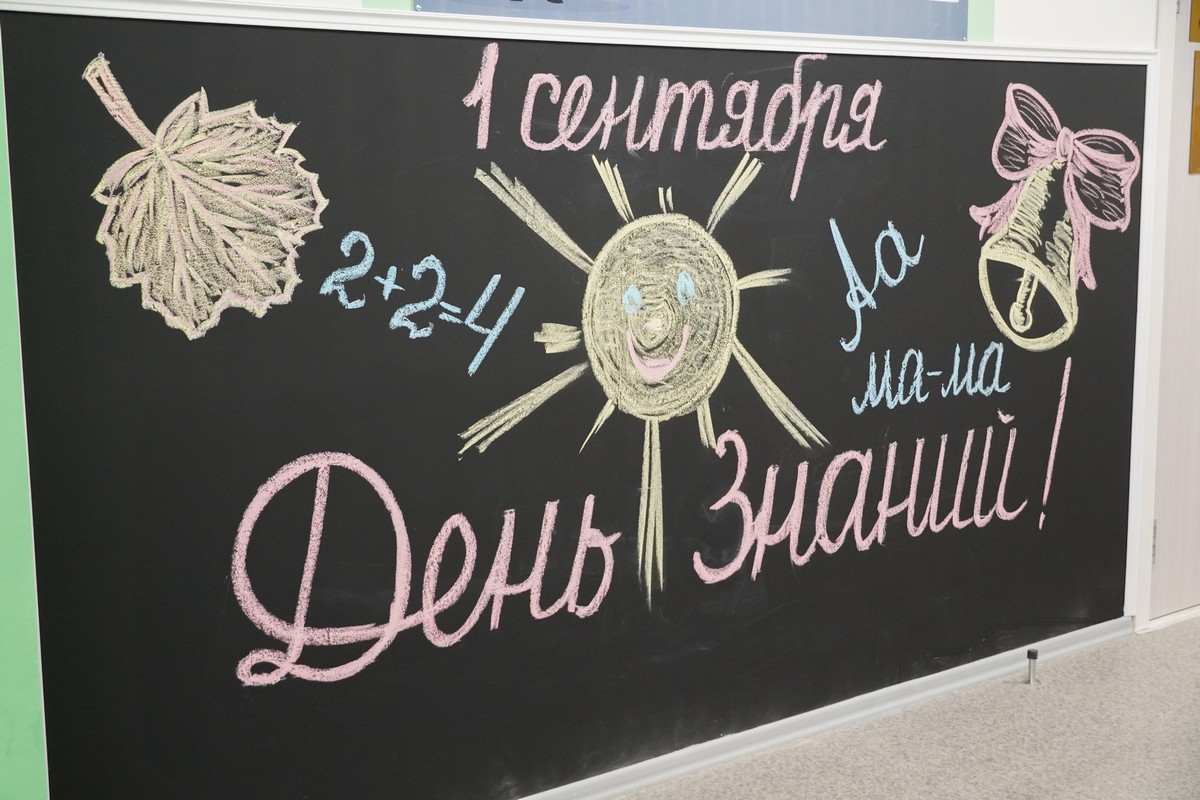 1 сентября
2+2=4
Аа
ма-ма
День Знаний!